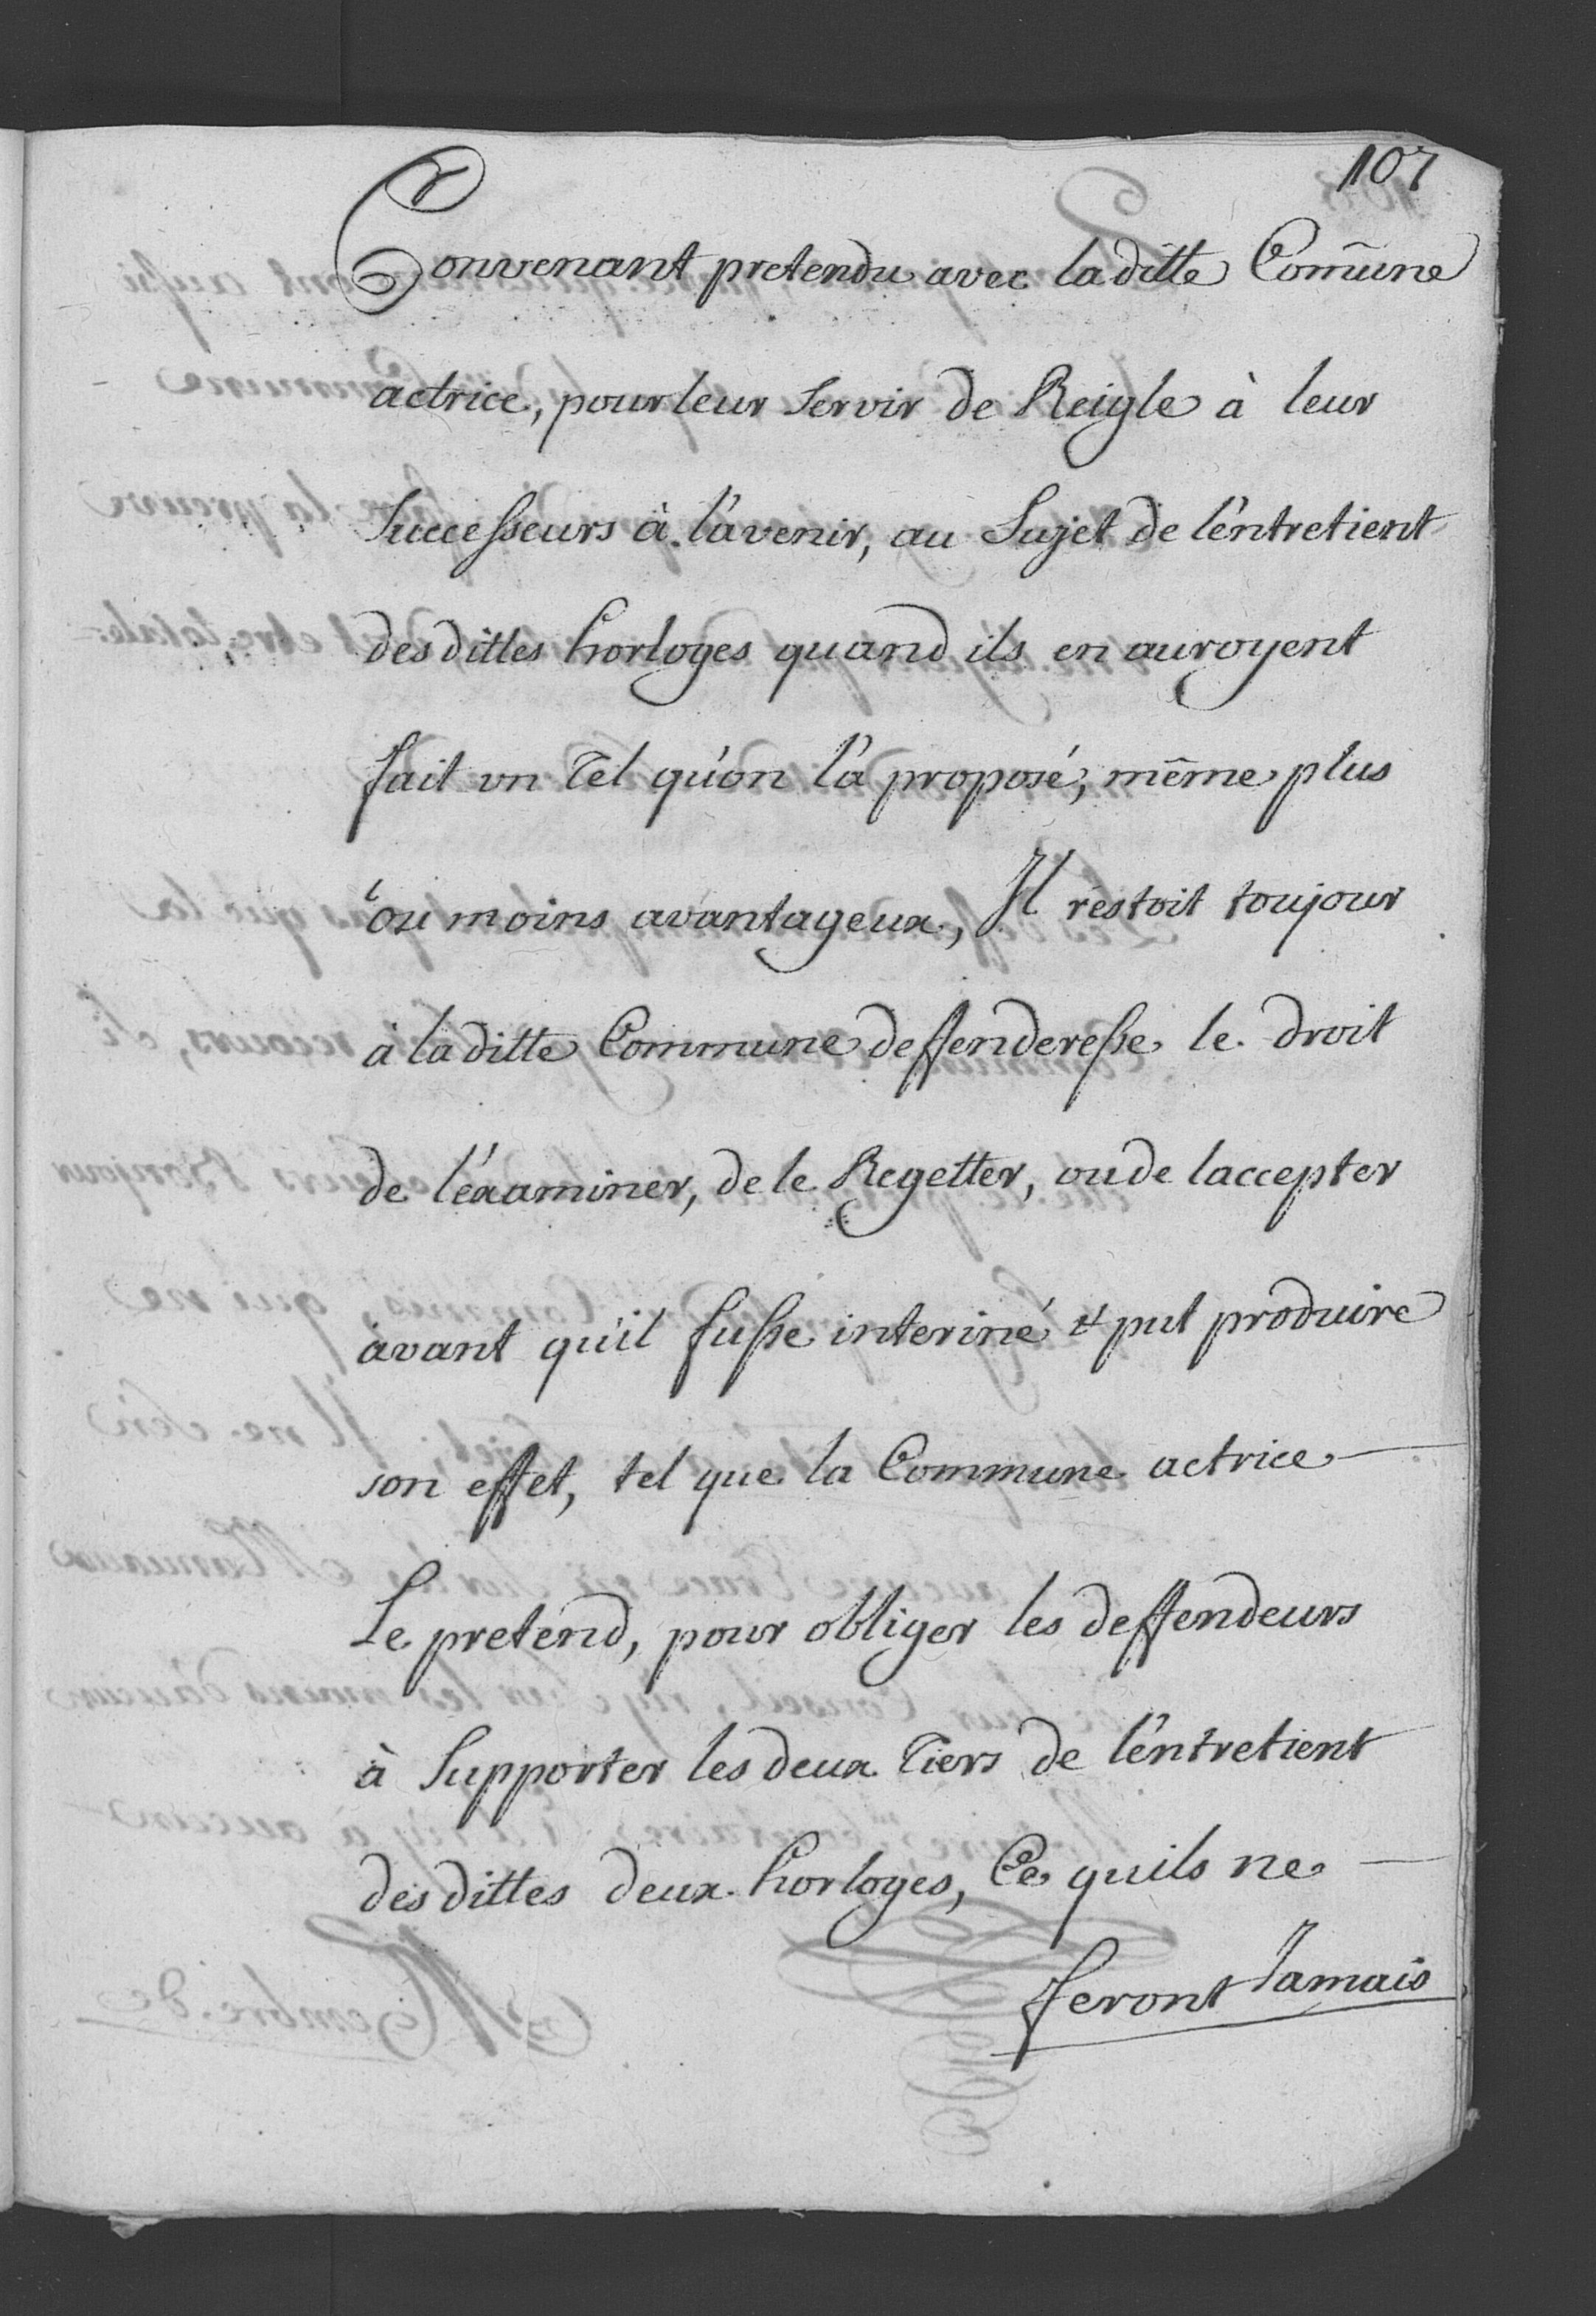 107
Convenant pretendu avec laditte Com̃une
actrice, pour leur Servir de Reigle à leur
Successeurs à l'avenir, au Sujet de l'entretient
desdittes horloges quand ils en auroyent
fait vn Tel qu'on l'a proposé, même plus
ou moins avantageux, Il restoit toujour
à laditte Commune deffenderesse le droit
de l'éxaminer, de le Regetter, ou de laccepter
avant qu'il fusse interiné & put produire
son effet, tel que la Commune actrice
Le pretend, pour obliger les deffendeurs
à Supporter les deux Tiers de l'entretient
desdittes deux horloges, Ce quils ne
feront Jamais